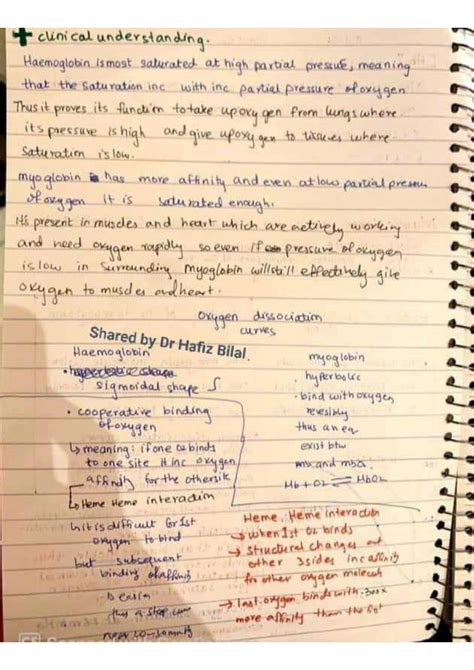 + clinical understanding.
Haemoglobin is most saturated at high partial pressure, meaning
that the saturation inc with inc partial pressure of oxygen
Thus it proves its function to take up oxygen from lungs where
its pressure is high and give up oxygen to tissues where
saturation is low.
myoglobin has more affinity and even at low partial pressure
of oxygen it is saturated enough.
It's present in muscles and heart which are actively working
and need oxygen rapidly so even if pressure of oxygen
is low in surrounding myoglobin will still effectively give
oxygen to muscles and heart.
oxygen dissociation
curves
Shared by Dr Hafiz Bilal.
Haemoglobin
• sigmoidal shape
• cooperative binding
of oxygen
↳ meaning: if one O2 binds
to one site it inc oxygen
affinity for the other site
↳ Heme Heme interaction
↳ it is difficult for 1st
oxygen to bind
but subsequent
binding of affinity
is easier
myoglobin
hyperbolic
• bind with oxygen
reversibly
thus an eq
exist btw
mb and mbO2
Mb + O2 ⇌ MbO2
Heme. Heme interaction
→ when 1st O2 binds
→ structural changes
other 3 sides inc affinity
for other oxygen
→ last oxygen binds with 300x
more affinity than the 1st